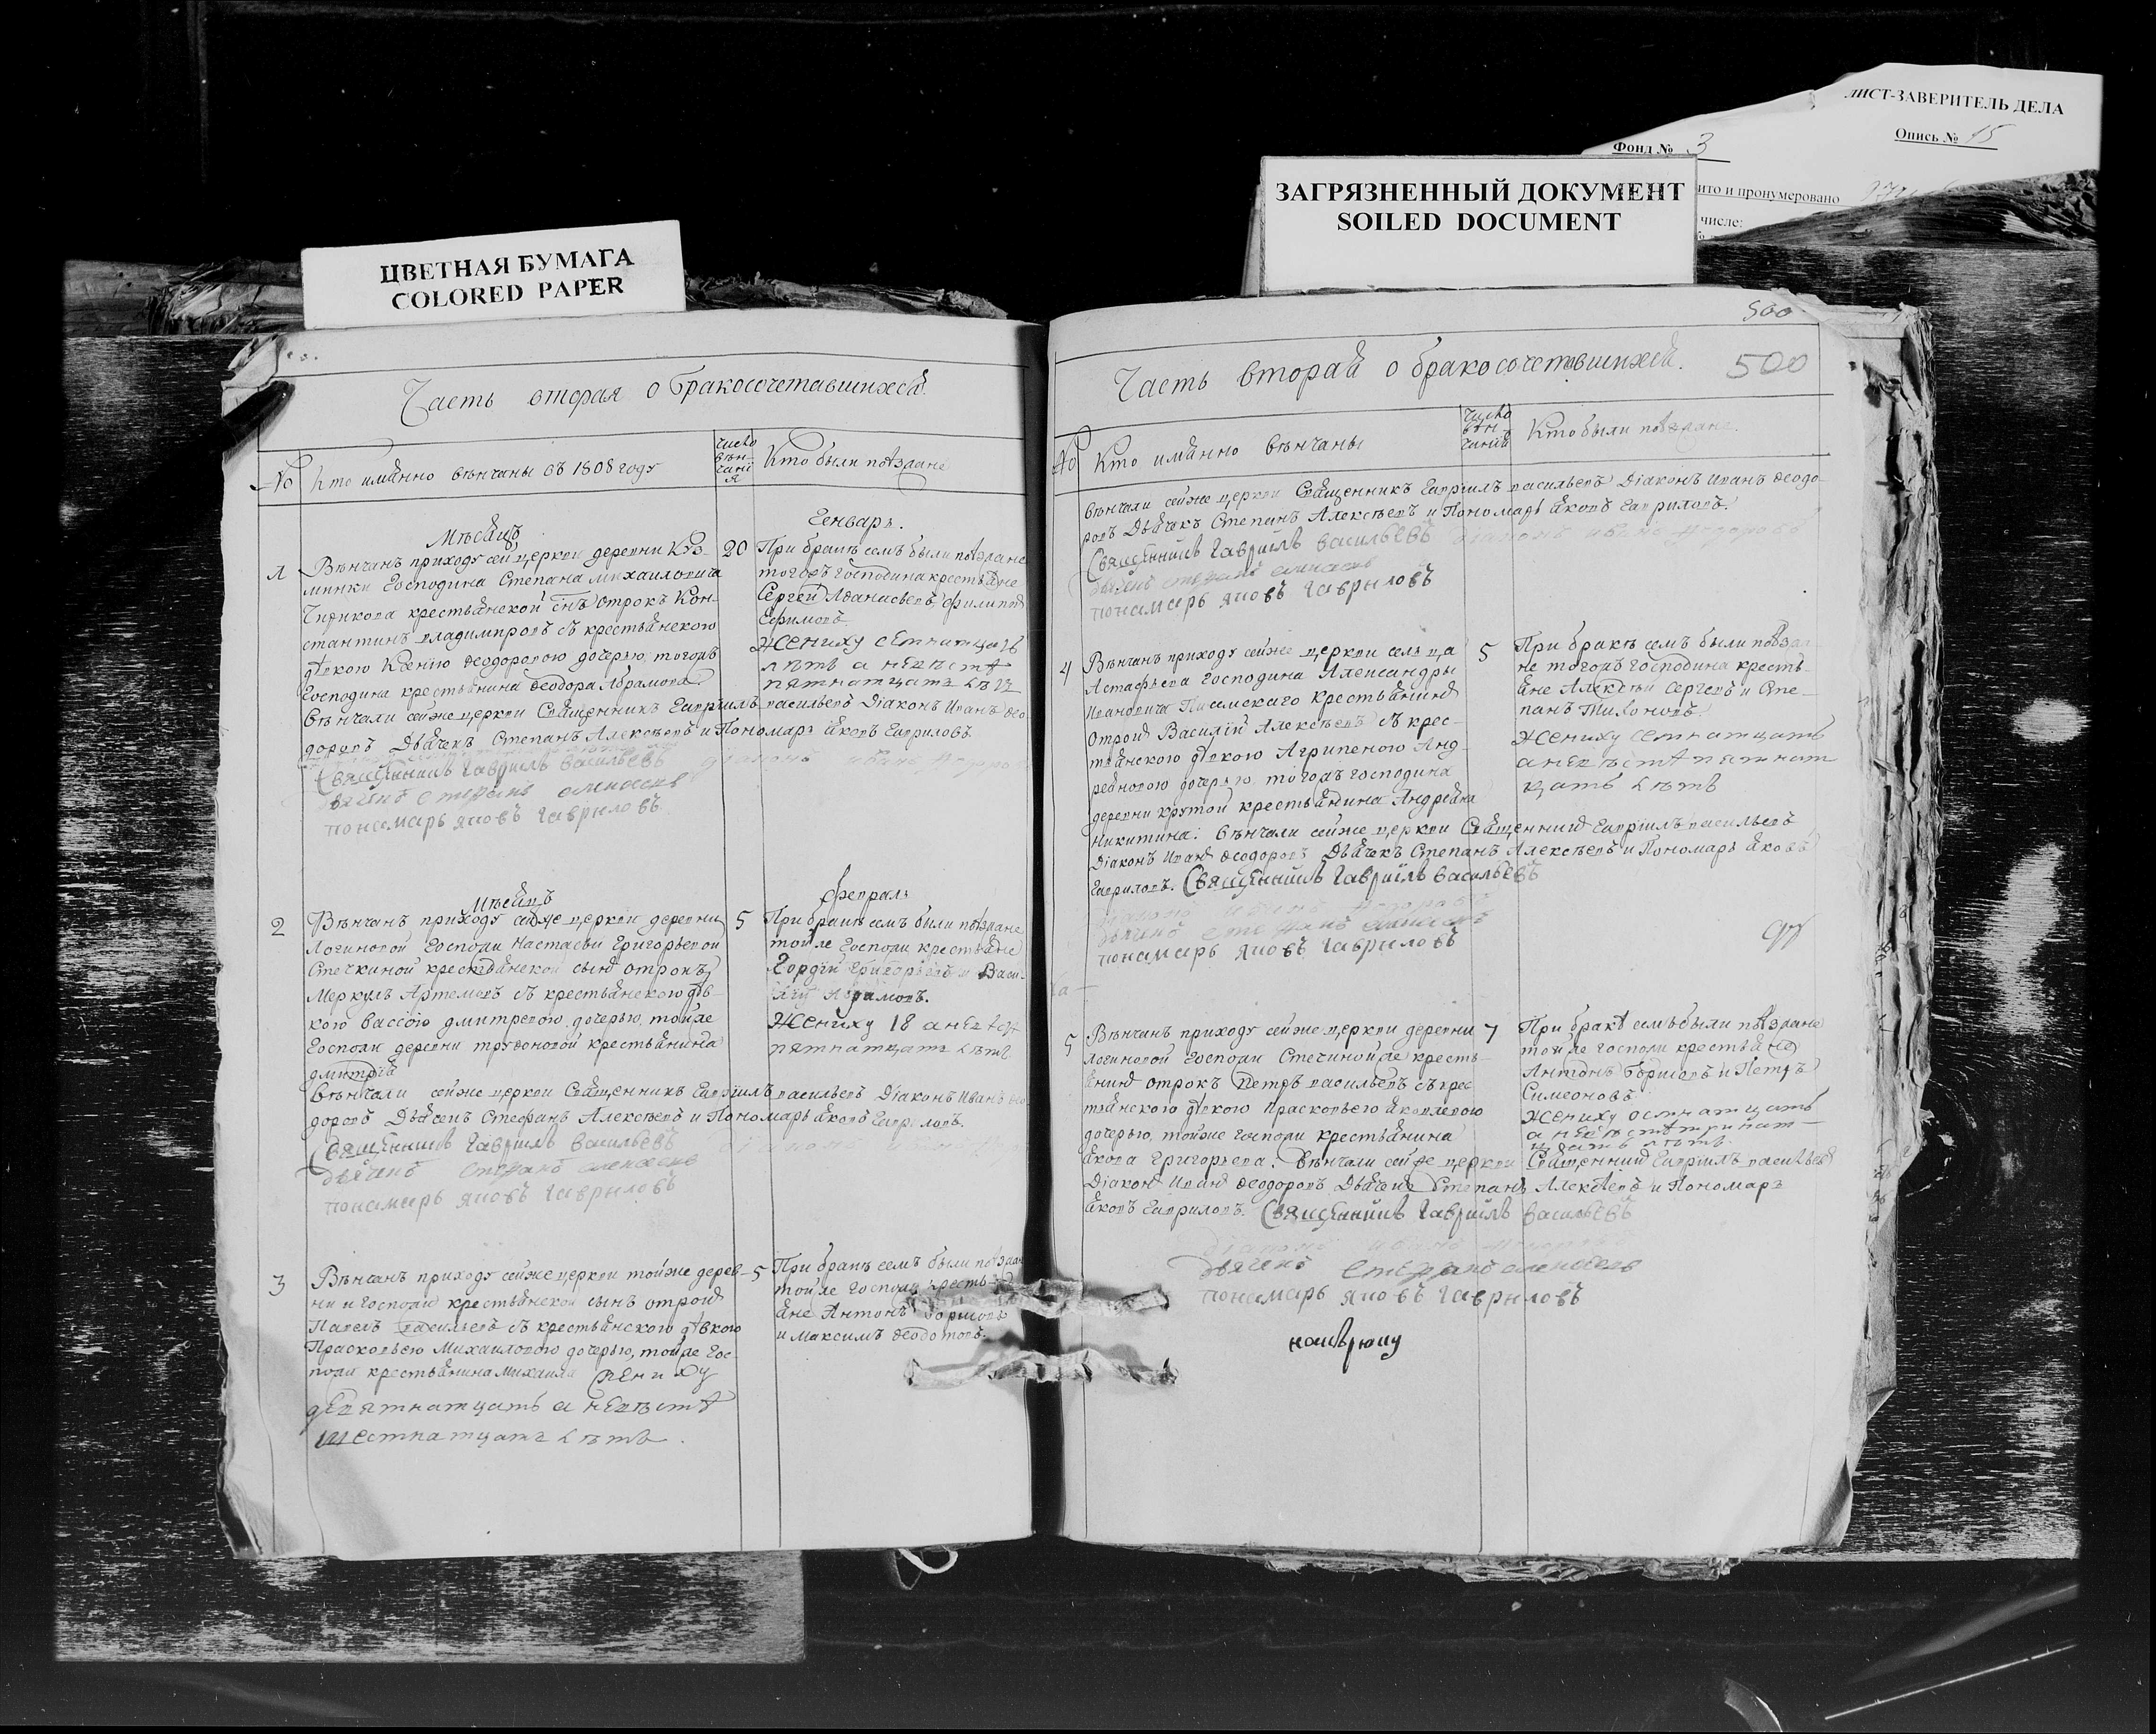 ЛИСТ-ЗАВЕРИТЕЛЬ ДЕЛА
Фонд № 3
Опись № 15
ито и пронумеровано
числе:
ЗАГРЯЗНЕННЫЙ ДОКУМЕНТ
SOILED DOCUMENT
ЦВЕТНАЯ БУМАГА
COLORED PAPER
Часть вторая о бракосочетавшихся.
№
Кто имянно венчаны въ 1808 году
число
вѣн-
чані
я
Кто были поѣзжане
Мѣсяцъ
Генварь.
1
Вѣнчанъ приходу сей церкви деревни Куз-
минки Господина Степана Михаиловича
Чирикова крестьянской сынъ отрокъ Кон-
стантинъ владимировъ съ крестьянскою
дѣвкою Ксениею Феодоровою дочерью, тогожъ
Господина крестьянина Феодора Абрамова
Вѣнчали сейже церкви Священникъ Гавріилъ васильевъ Діаконъ Иванъ Фео-
доровъ Дьячекъ Степанъ Алексѣевъ и Пономарь Яковъ Гавриловъ.
Священникъ Гавріилъ Васильевъ
дьячекъ Степанъ Алексеевъ
пономарь Яковъ Гавриловъ
20
При бракѣ семъ были поѣзжане
тогожъ Господина крестьяне
Сергей Афанасьевъ, филиппъ
Ефимовъ.
Жениху семнатцать
лѣтъ а невѣстѣ
пятнатцать лѣтъ
Мѣсяцъ
Февраль
2
Вѣнчанъ приходу сейже церкви деревни
Логиновой Госпожи Настасьи Григорьевой
Стечкиной крестьянской сынъ отрокъ
Меркулъ Артемовъ съ крестьянскою дѣв-
кою Вассою дмитревою дочерью, тойже
Госпожи деревни Трифоновой крестьянина
дмитрія
Вѣнчали сейже церкви Священникъ Гавріилъ васильевъ Діаконъ Иванъ Фео-
доровъ Дьячекъ Стефанъ Алексѣевъ и Пономарь Яковъ Гавриловъ.
Священникъ Гавріилъ Васильевъ
дьячекъ Степанъ Алексеевъ
пономарь Яковъ Гавриловъ
5
При бракѣ семъ были поѣзжане
тойже Госпожи крестьяне
Гордѣй Григорьевъ и Васи-
лій Абрамовъ.
Жениху 18 а невестѣ
пятнатцать лѣтъ
3
Вѣнчанъ приходу сейже церкви тойже дерев-
ни и Госпожи крестьянской сынъ отрокъ
Павелъ васильевъ съ крестьянскою дѣвкою
Прасковьею Михаиловою дочерью, тойже Гос-
пожи крестьянина Михаила Жениху
девятнатцать а невѣстѣ
шестнатцать лѣтъ.
5
При бракѣ семъ были поѣзжа-
тойже Госпожи крестья-
яне Антонъ Борисовъ
и Максимъ Феодотовъ.
500
Часть вторая о бракосочетавшихся.
500
№
Кто имянно вѣнчаны
число
вѣн-
чанія
Кто были поѣзжане.
Вѣнчали сейже церкви Священникъ Гавріилъ васильевъ Діаконъ Иванъ Феодо-
ровъ Дьячекъ Степанъ Алексѣевъ и Пономарь Яковъ Гавриловъ.
Священникъ Гавріилъ Васильевъ
дьячекъ Степанъ Алексеевъ
пономарь Яковъ Гавриловъ
4
Вѣнчанъ приходу сейже церкви сельца
Астафьева Господина Александры
Ивановича Писемскаго крестьянинъ
Отрокъ Василій Алексѣевъ съ крес-
тьянскою дѣвкою Агрипеною Анд-
реяновою дочерью, тогожъ господина
деревни крутой крестьянина Андреяна
Никитина. Вѣнчали сейже церкви Священникъ Гавріилъ васильевъ
Діаконъ Иванъ Феодоровъ Дьячекъ Степанъ Алексѣевъ и Пономарь Яковъ
Гавриловъ. Священникъ Гавріилъ Васильевъ
дьячекъ Степанъ Алексеевъ
пономарь Яковъ Гавриловъ
5
При бракѣ семъ были поѣзжа-
не тогожъ господина кресть-
яне Алексѣй Сергеевъ и Сте-
панъ Тихоновъ.
Жениху семнатцать
а невѣстѣ пятнат
цать лѣтъ
5
Вѣнчанъ приходу сейже церкви деревни
Логиновой Госпожи Стечкиной же кресть-
янинъ отрокъ Петръ васильевъ съ крес
тьянскою дѣвкою Прасковьею Яковлевою
дочерью, тойже Госпожи крестьянина
Якова Григорьева. Вѣнчали сейже церкви Священникъ Гавріилъ васильевъ
Діаконъ Иванъ Феодоровъ Дьячекъ Степанъ Алексѣевъ и Пономарь
Яковъ Гавриловъ. Священникъ Гавріилъ Васильевъ
дьячекъ Степанъ Алексеевъ
пономарь Яковъ Гавриловъ
7
При бракѣ семъ были поѣзжане
тойже госпожи крестьяне
Антонъ Борисовъ и Петръ
Симеоновъ.
Жениху осмнатцать
а невѣстѣ тринат-
цать лѣтъ.